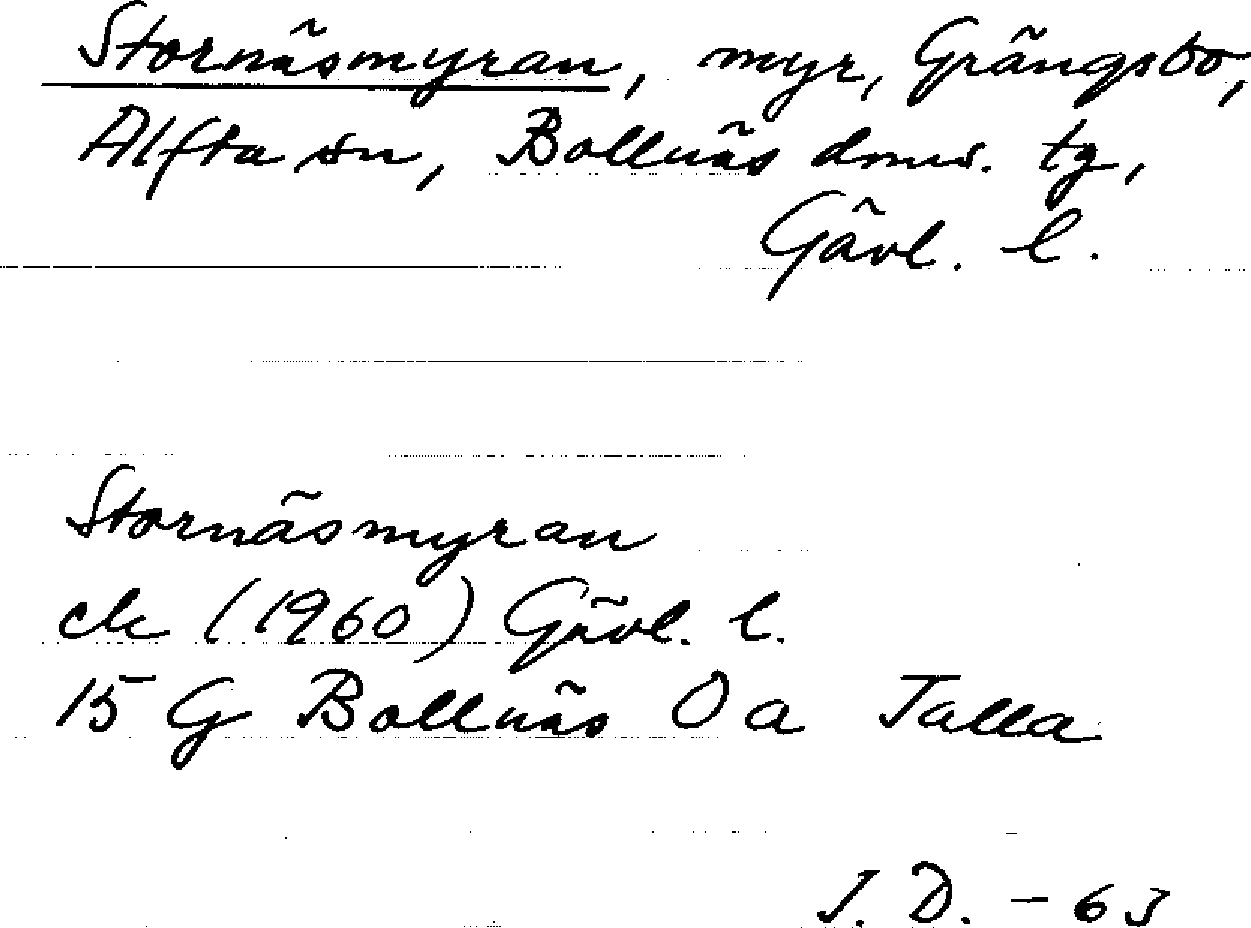 Stornäsmyran, myr, Grängsbo,
Alfta sn, Bollnäs doms. tg,
Gävl. l.
Stornäsmyran
ek (1960) Gävl. l.
15 G Bollnäs 0 a Talla
I. D. - 63